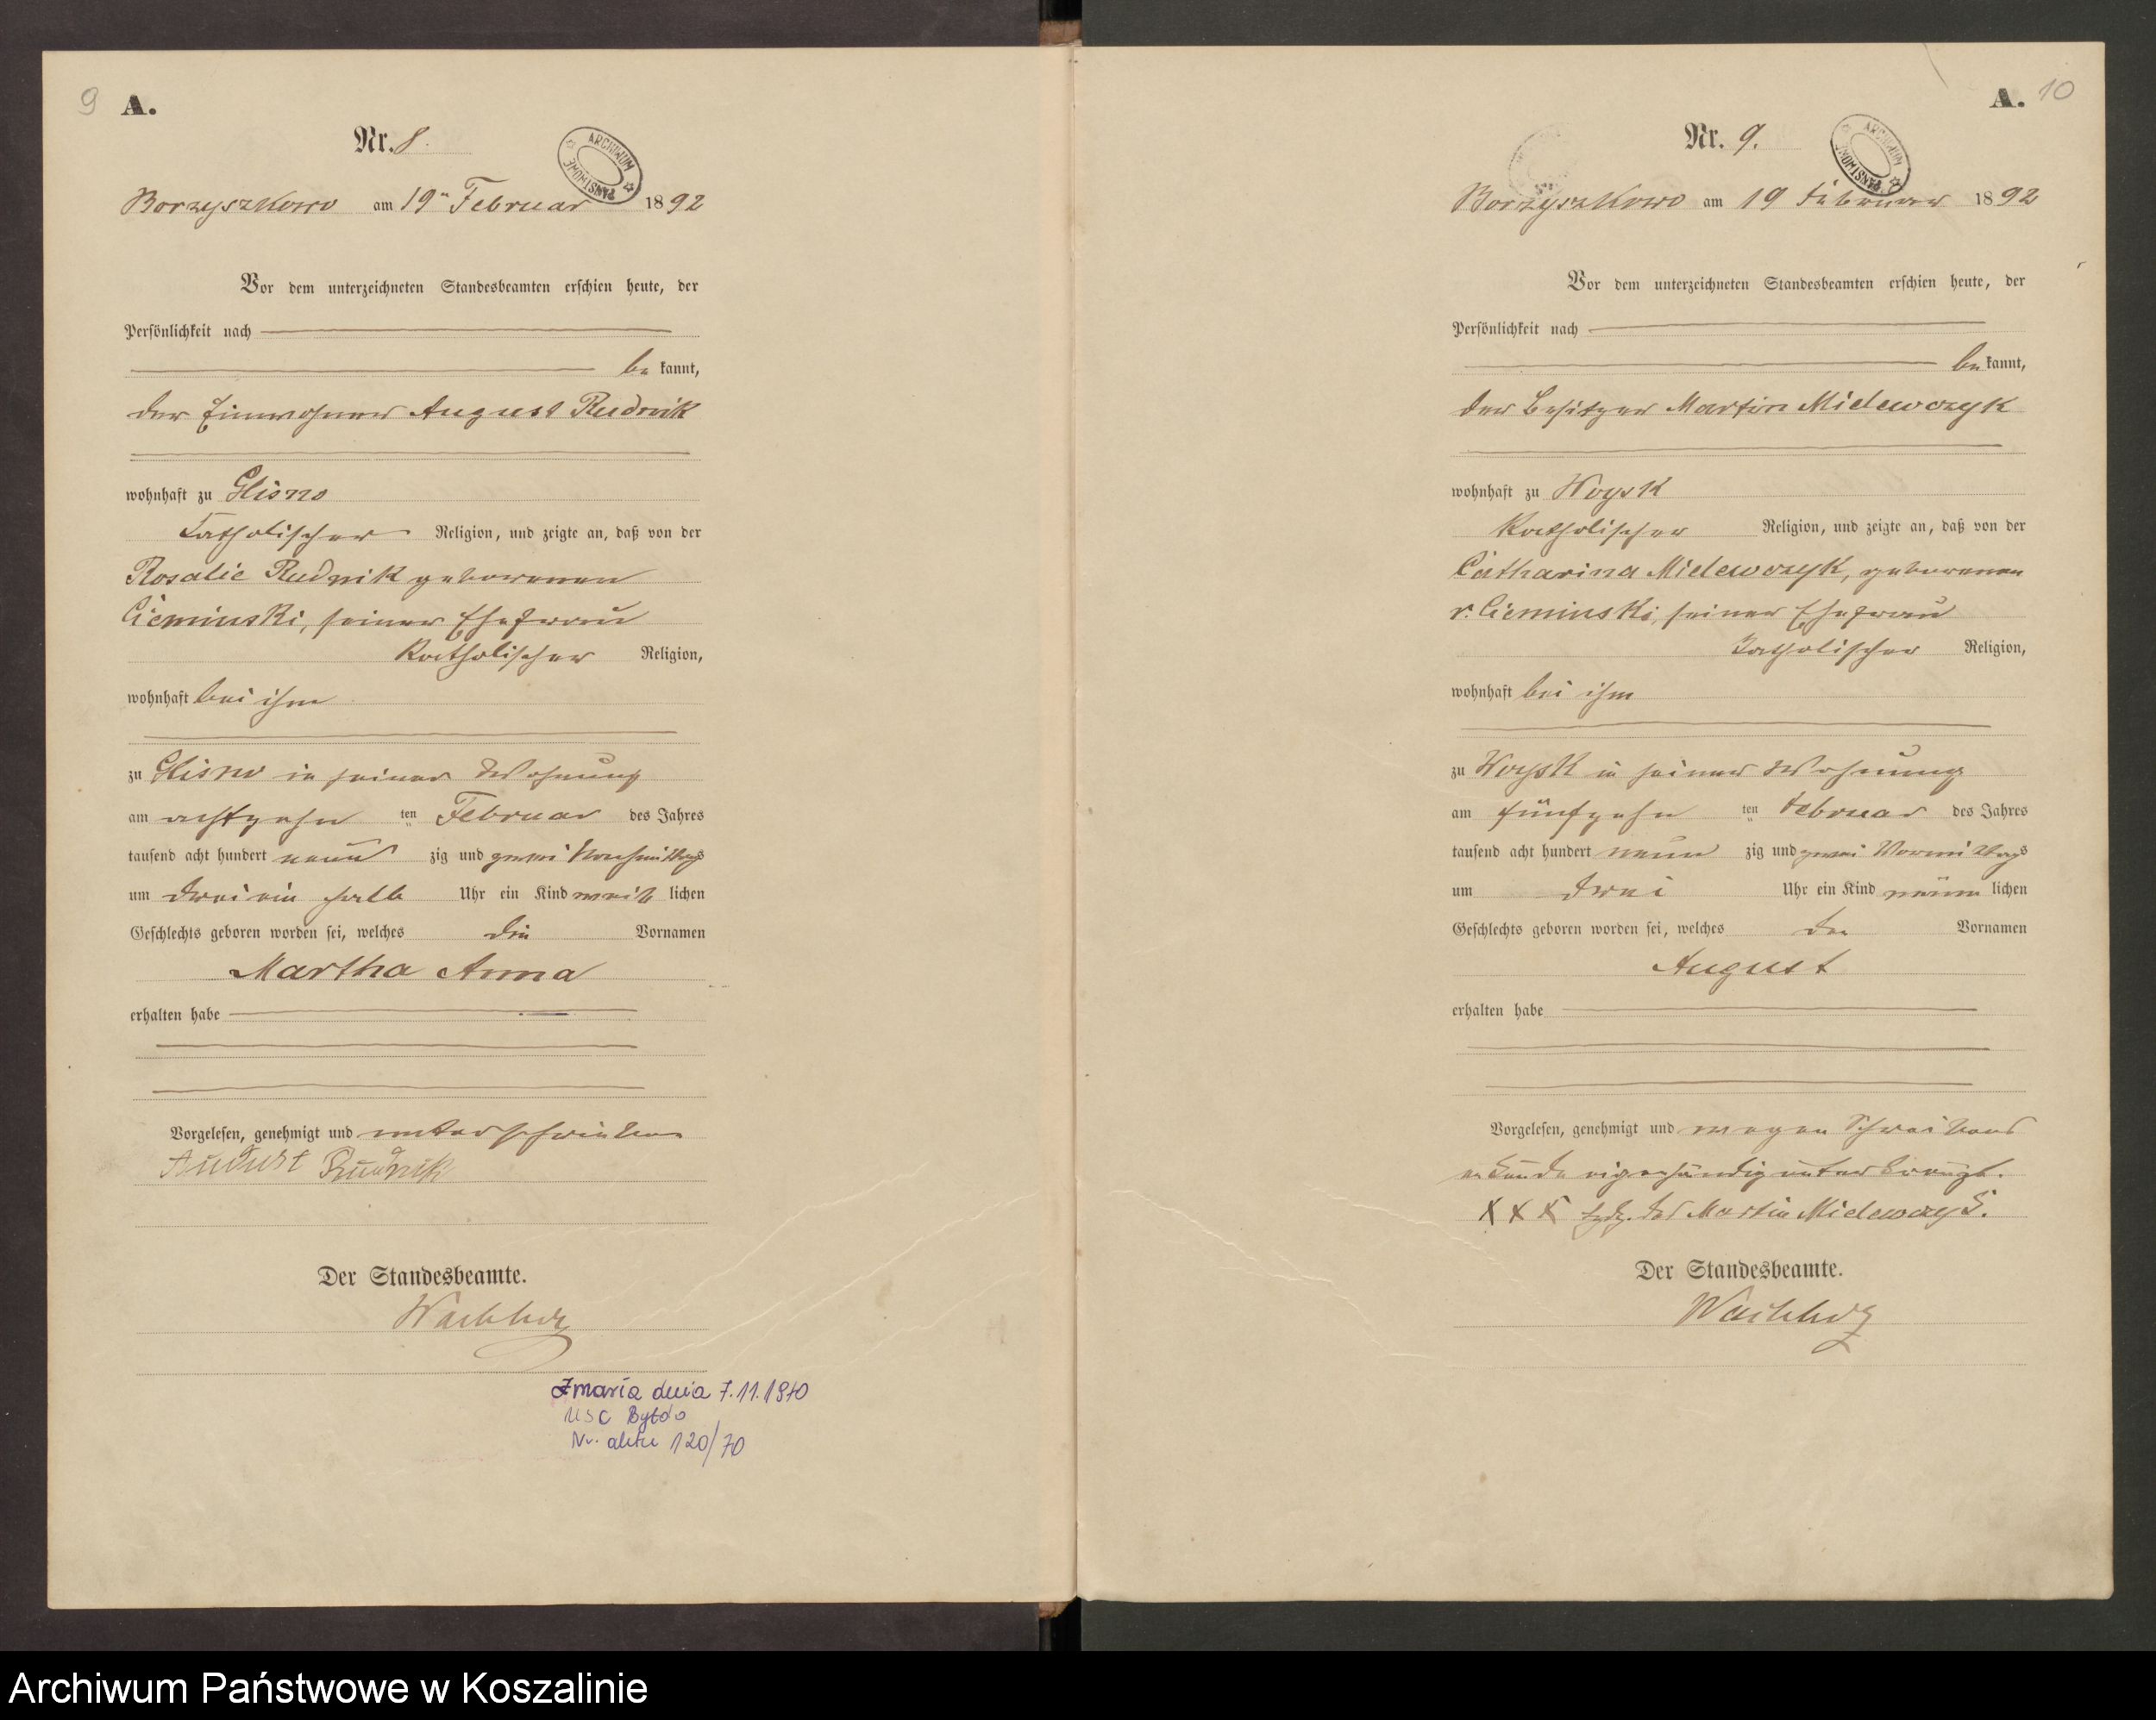 9 A.
Nr. 8.
ARCHIWUM PAŃSTWOWE
Borzyszkowo am 19ten Februar 1892
Vor dem unterzeichneten Standesbeamten erschien heute, der
Persönlichkeit nach
be kannt,
der Einwohner August Rudnik
wohnhaft zu Glisno
katholischer Religion, und zeigte an, daß von der
Rosalie Rudnik geborenen
Cieminski, seiner Ehefrau
katholischer Religion,
wohnhaft bei ihm
zu Glisno in seiner Wohnung
am achtzehn ten Februar des Jahres
tausend acht hundert neun zig und zwei Nachmittags
um drei ein halb Uhr ein Kind weib lichen
Geschlechts geboren worden sei, welches die Vornamen
Martha Anna
erhalten habe
Vorgelesen, genehmigt und unterschrieben
August Rudnik
Der Standesbeamte.
Zmarła dnia 7.11.1970
USC
Nr. aktu 120/70
A. 10
Nr. 9.
ARCHIWUM PAŃSTWOWE
Borzyszkowo am 19 Februar 1892
Vor dem unterzeichneten Standesbeamten erschien heute, der
Persönlichkeit nach
be kannt,
der Besitzer Martin Mielewczyk
wohnhaft zu Woysk
katholischer Religion, und zeigte an, daß von der
Catharina Mielewczyk, geborenen
v. Cieminski, seiner Ehefrau
katholischer Religion,
wohnhaft bei ihm
zu Woysk in seiner Wohnung
am fünfzehn ten Februar des Jahres
tausend acht hundert neun zig und zwei Vormittags
um drei Uhr ein Kind männ lichen
Geschlechts geboren worden sei, welches den Vornamen
August
erhalten habe
Vorgelesen, genehmigt und wegen Schreibens
unkunde eigenhändig unterkreuzt.
X X X Hdz. des Martin Mielewczyk.
Der Standesbeamte.
Archiwum Państwowe w Koszalinie